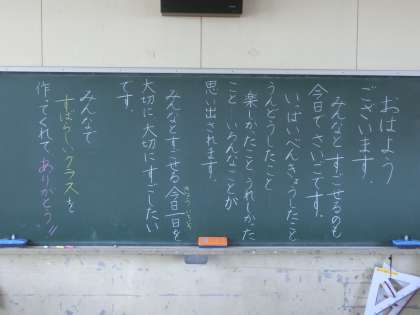 おはよう
ございます。
みんなとすごせるのも
今日でさいごです。
いっぱいべんきょうしたこと
うんどうしたこと
楽しかったこと うれしかった
こと いろんなことが
思い出されます。
みんなとすごせる今日一日を
きょういちにち
大切に大切にすごしたい
です。
みんなで
すばらしいクラスを
作ってくれて、ありがとう!!